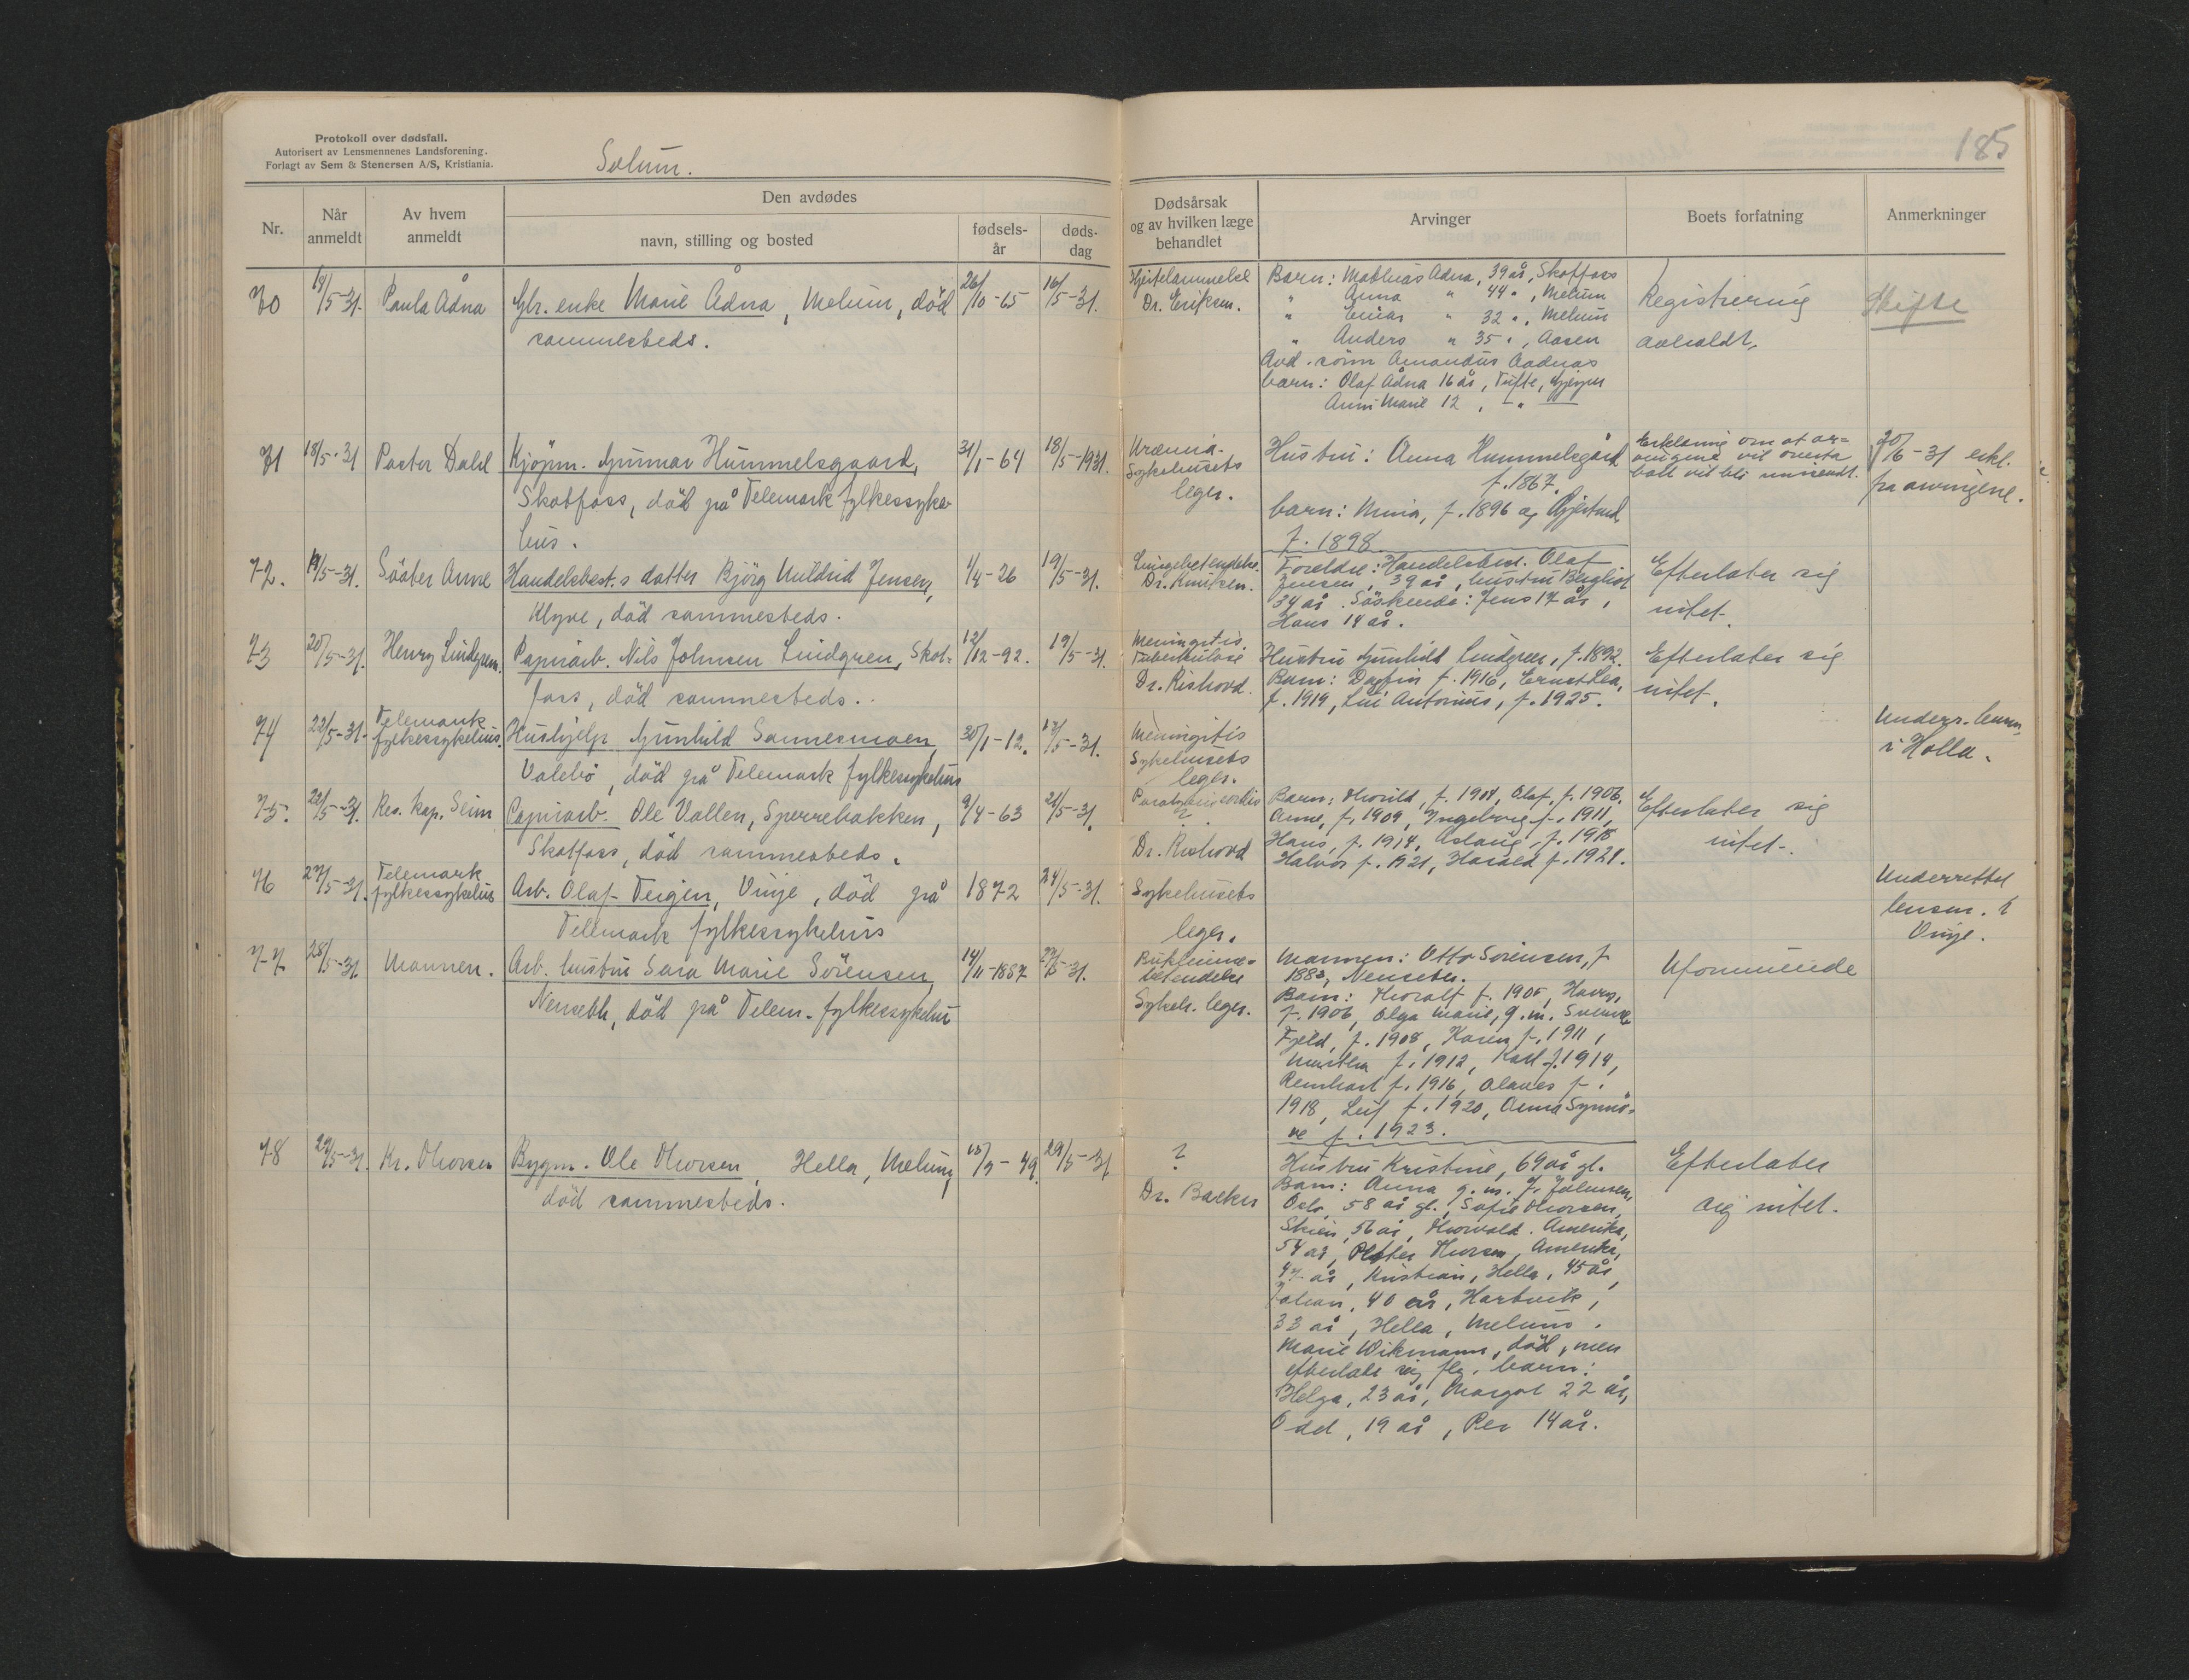 Protokoll over dødsfall.
Autorisert av Lensmennenes Landsforening.
Forlagt av Sem & Stenersen A/S, Kristiania.
Solum.
185
Nr.
Når anmeldt
Av hvem anmeldt
Den avdødes
navn, stilling og bosted
fødsels-
år
døds-
dag
Dødsårsak
og av hvilken læge
behandlet
Arvinger
Boets forfatning
Anmerkninger
70
19/5-31.
Paula Ådna
Gbr. enke Marie Ådna, Melum, död
sammesteds.
26/10-65
16/5-31.
Hjertelammelse
Dr. Eriksen.
Barn: Mathias Adna, 39 år, Skotfoss
" Anna " 44 ", Melum
" Einar " 32 ", Melum
" Anders " 35 ", Aasen
Avd. sönn Amandus Aadnas
barn: Olaf Ådna 16 år, Tufte, Gjerpen
Anni Marie 12, - " -
Registrering
avholdt,
Skifte
71
18/5-31
Pastor Dahl
Kjöpm. Gunnar Hummelsgaard,
Skotfoss, död på Telemark fylkessyke-
hus.
31/1-64
18/5-1931.
Uræmia.
Sykehusets
leger.
Hustru: Anna Hummelsgård
f. 1867.
barn: Mina, f. 1896 og Gjertrud
f. 1898.
Erklæring om at ar=
vingene vil overta
boet vil bli innsendt.
20/6-31 erkl.
fra arvingene.
72.
19/5-31.
Söster Anne
Handelsbest.s datter Björg Muldrid Jensen,
Klyve, död sammesteds.
1/4-26
19/5-31.
Lungebetendelse.
Dr. Knutsen.
Foreldre: Handelsbest. Olaf
Jensen, 39 år, hustru Bergliot
34 år. Söskende: Jens 17 år,
Hans 14 år.
Efterlater sig
intet.
73
20/5-31.
Henry Lindgren.
Papirarb. Nils Johnsen Lindgren, Skot-
foss, död sammesteds.
12/12-92.
19/5-31.
Meningitis
Tuberkulose
Dr. Rishovd.
Hustru Gunhild Lindgren, f. 1892.
Barn: Dagfin f. 1916, Ernst Lea,
f. 1919, Liv Antonius, f. 1925.
Efterlater sig
intet.
74
22/5-31.
Telemark
fylkessykehus.
Hushjelp Gunhild Sannesmoen,
Valebö, död på Telemark fylkessykehus
30/1-12.
17/5-31.
Meningitis
Sykehusets
leger.
Underr. lensm.
i Holla.
75.
22/5-31.
Res. kap. Seim
Papirarb. Ole Vallen, Sperrebakken,
Skotfoss, död sammesteds.
9/4-63
21/5-31.
Paralysis cordis
?
Dr. Rishovd
Barn: Thorild, f. 1904, Olaf, f. 1906.
Anne, f. 1909, Ingeborg f. 1911,
Hans, f. 1914, Aslaug, f. 1918
Halvor f. 1921, Harald f. 1921.
Efterlater sig
intet.
76
27/5-31.
Telemark
fylkessykehus
Arb. Olaf Teigen, Vinje, död på
Telemark fylkessykehus
1872
24/5-31.
Sykehusets
leger.
Underrettet
lensm. i
Vinje.
77
28/5-31.
Mannen.
Arb. hustru Sara Marie Sörensen,
Nenseth, död på Telem. fylkessykehus
14/11-1887
27/5-31.
Bukhinne=
betendelse
Sykeh. leger.
Mannen: Otto Sorensen, f
1883, Nenseter.
Barn: Thoralf f. 1905, Harry,
f. 1906, Olga Marie, g.m. Sverre
Fjeld, f. 1908, Karen f. 1911,
Martha f. 1912, Karl f. 1914,
Reinhart f. 1916, Olaves f.
1918, Leif f. 1920, Anna Synnö-
ve f. 1923.
Uformuende
78
29/5-31.
Kr. Thorsen
Bygm. Ole Thorsen, Hella, Melum,
död sammesteds.
15/7-49.
29/5-31
?
Dr. Backer
Hustru Kristine, 69 år gl.
Barn: Anna g.m. J. Johnsen,
Oslo, 58 år gl., Sofie Thorsen,
Skien, 56 år, Thorvald. Amerika,
54 år, Petter Thorsen, Amerika,
47 år, Kristian, Hella, 45 år,
Johan, 40 år, Hartvik,
33 år, Hella, Melum.
Marie Wikmann, död, men
efterlatt sig flg. barn:
Helga, 23 år, Margot 22 år,
Odd, 19 år, Per 14 år.
Efterlater
sig intet.